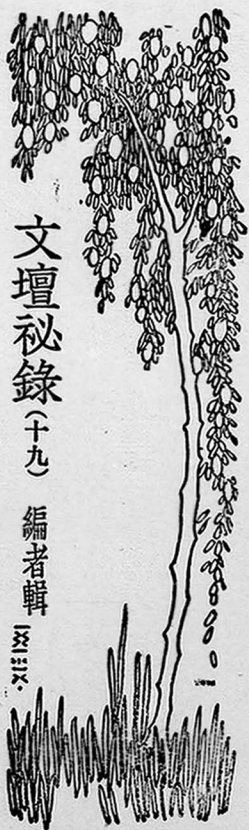 文壇祕錄(十九)
編者輯